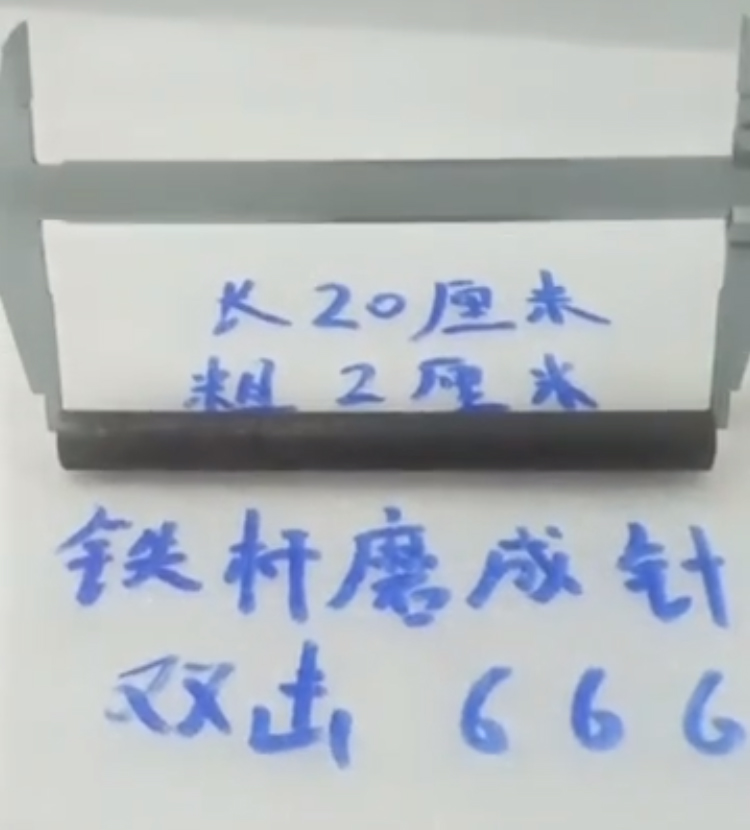 长20厘米
粗2厘米
铁杆磨成针
双击 666